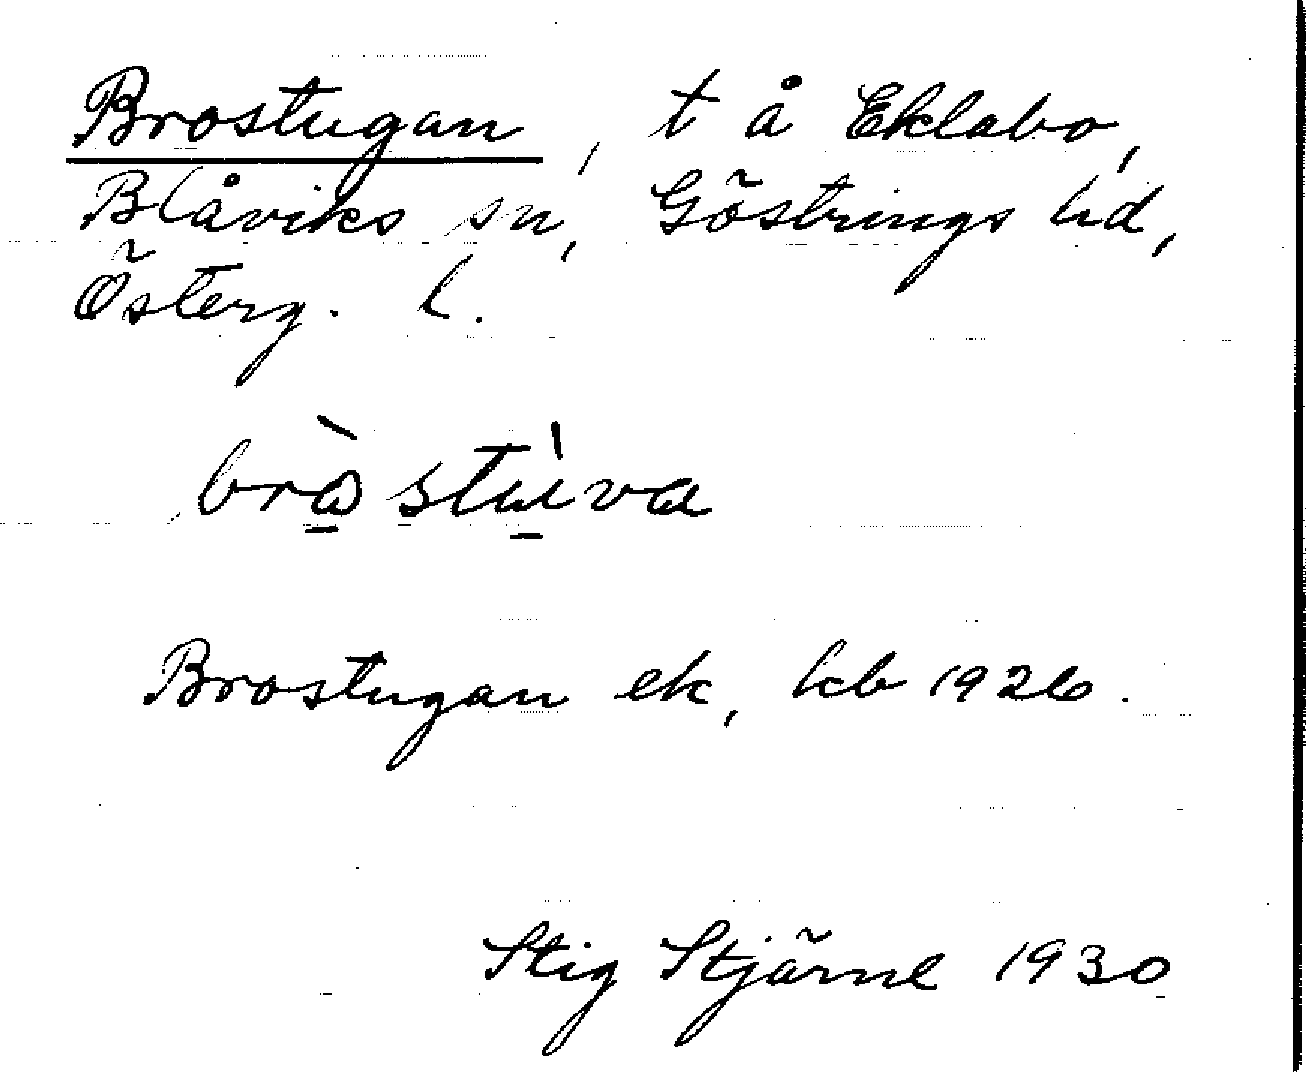 Brostugan, t å Eklabo,
Blåviks sn, Göstrings hd,
Österg. l.
bròstùva
Brostugan ek, kb 1926.
Stig Stjärne 1930